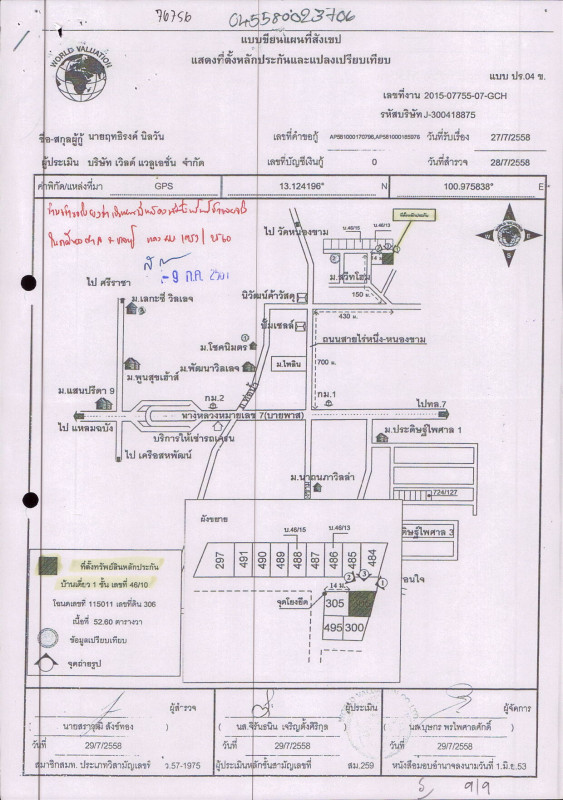 70756
045580023706
WORLD VALUATION
แบบเขียนแผนที่สังเขป
แสดงที่ตั้งหลักประกันและแปลงเปรียบเทียบ
แบบ ปร.04 ข.
เลขที่งาน 2015-07755-07-GCH
รหัสบริษัท J-300418875
ชื่อ-สกุลผู้กู้ นายฤทธิรงค์ นิลวัน
เลขที่คำขอกู้ AP581000170796,AP581000185976 วันที่รับเรื่อง 27/7/2558
ผู้ประเมิน บริษัท เวิลด์ แวลูเอชั่น จำกัด
เลขที่บัญชีเงินกู้ 0 วันที่สำรวจ 28/7/2558
ค่าพิกัด/แหล่งที่มา GPS 13.124196° N 100.975838° E
ที่ตั้งหลักประกัน
ไป วัดหนองขาม
บ.46/15
บ.46/13
14 ม.
ม.สวีทโฮม
150 ม.
ไป ศรีราชา
ม.เลกะซี่ วิลเลจ
นิวัฒน์ค้าวัสดุ
430 ม.
ปั๊มเชลล์
ถนนสายไร่หนึ่ง-หนองขาม
ม.โชคนิมิตร
ม.ไพลิน
700 ม.
ม.พูนสุขเฮ้าส์
ม.พัฒนาวิลเลจ
ม.แสนปรีดา 9
กม.2
กม.1
ไปทล.7
ทางหลวงหมายเลข 7(บายพาส)
ไป แหลมฉบัง
บริการให้เช่ารถเครน
ม.ประดิษฐ์ไพศาล 1
ไป เครือสหพัฒน์
ม.นาถนภาวิลล่า
724/127
ผังขยาย
บ.46/15
บ.46/13
297
491
490
489
488
487
486
485
484
ดิษฐ์ไพศาล 3
อนใจ
14 ม.
จุดโยงยึด
305
495
300
ที่ตั้งทรัพย์สินหลักประกัน
บ้านเดี่ยว 1 ชั้น เลขที่ 46/10
โฉนดเลขที่ 115011 เลขที่ดิน 306
เนื้อที่ 52.60 ตารางวา
ข้อมูลเปรียบเทียบ
จุดถ่ายรูป
ผู้สำรวจ
ผู้ประเมิน
ผู้จัดการ
นายสราวุฒิ สังข์ทอง
นส.จีรันธนิน เจริญตั้งศิริกุล
นส.บุษกร พรไพศาลศักดิ์
วันที่ 29/7/2558
วันที่ 29/7/2558
วันที่ 29/7/2558
สมาชิกสมท. ประเภทวิสามัญเลขที่ ว.57-1975
ผู้ประเมินหลักชั้นสามัญเลขที่ สม.259
หนังสือมอบอำนาจลงนามวันที่ 1.มิ.ย.53
9/9